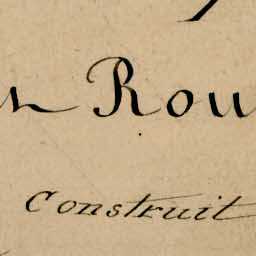 Rou
Construit